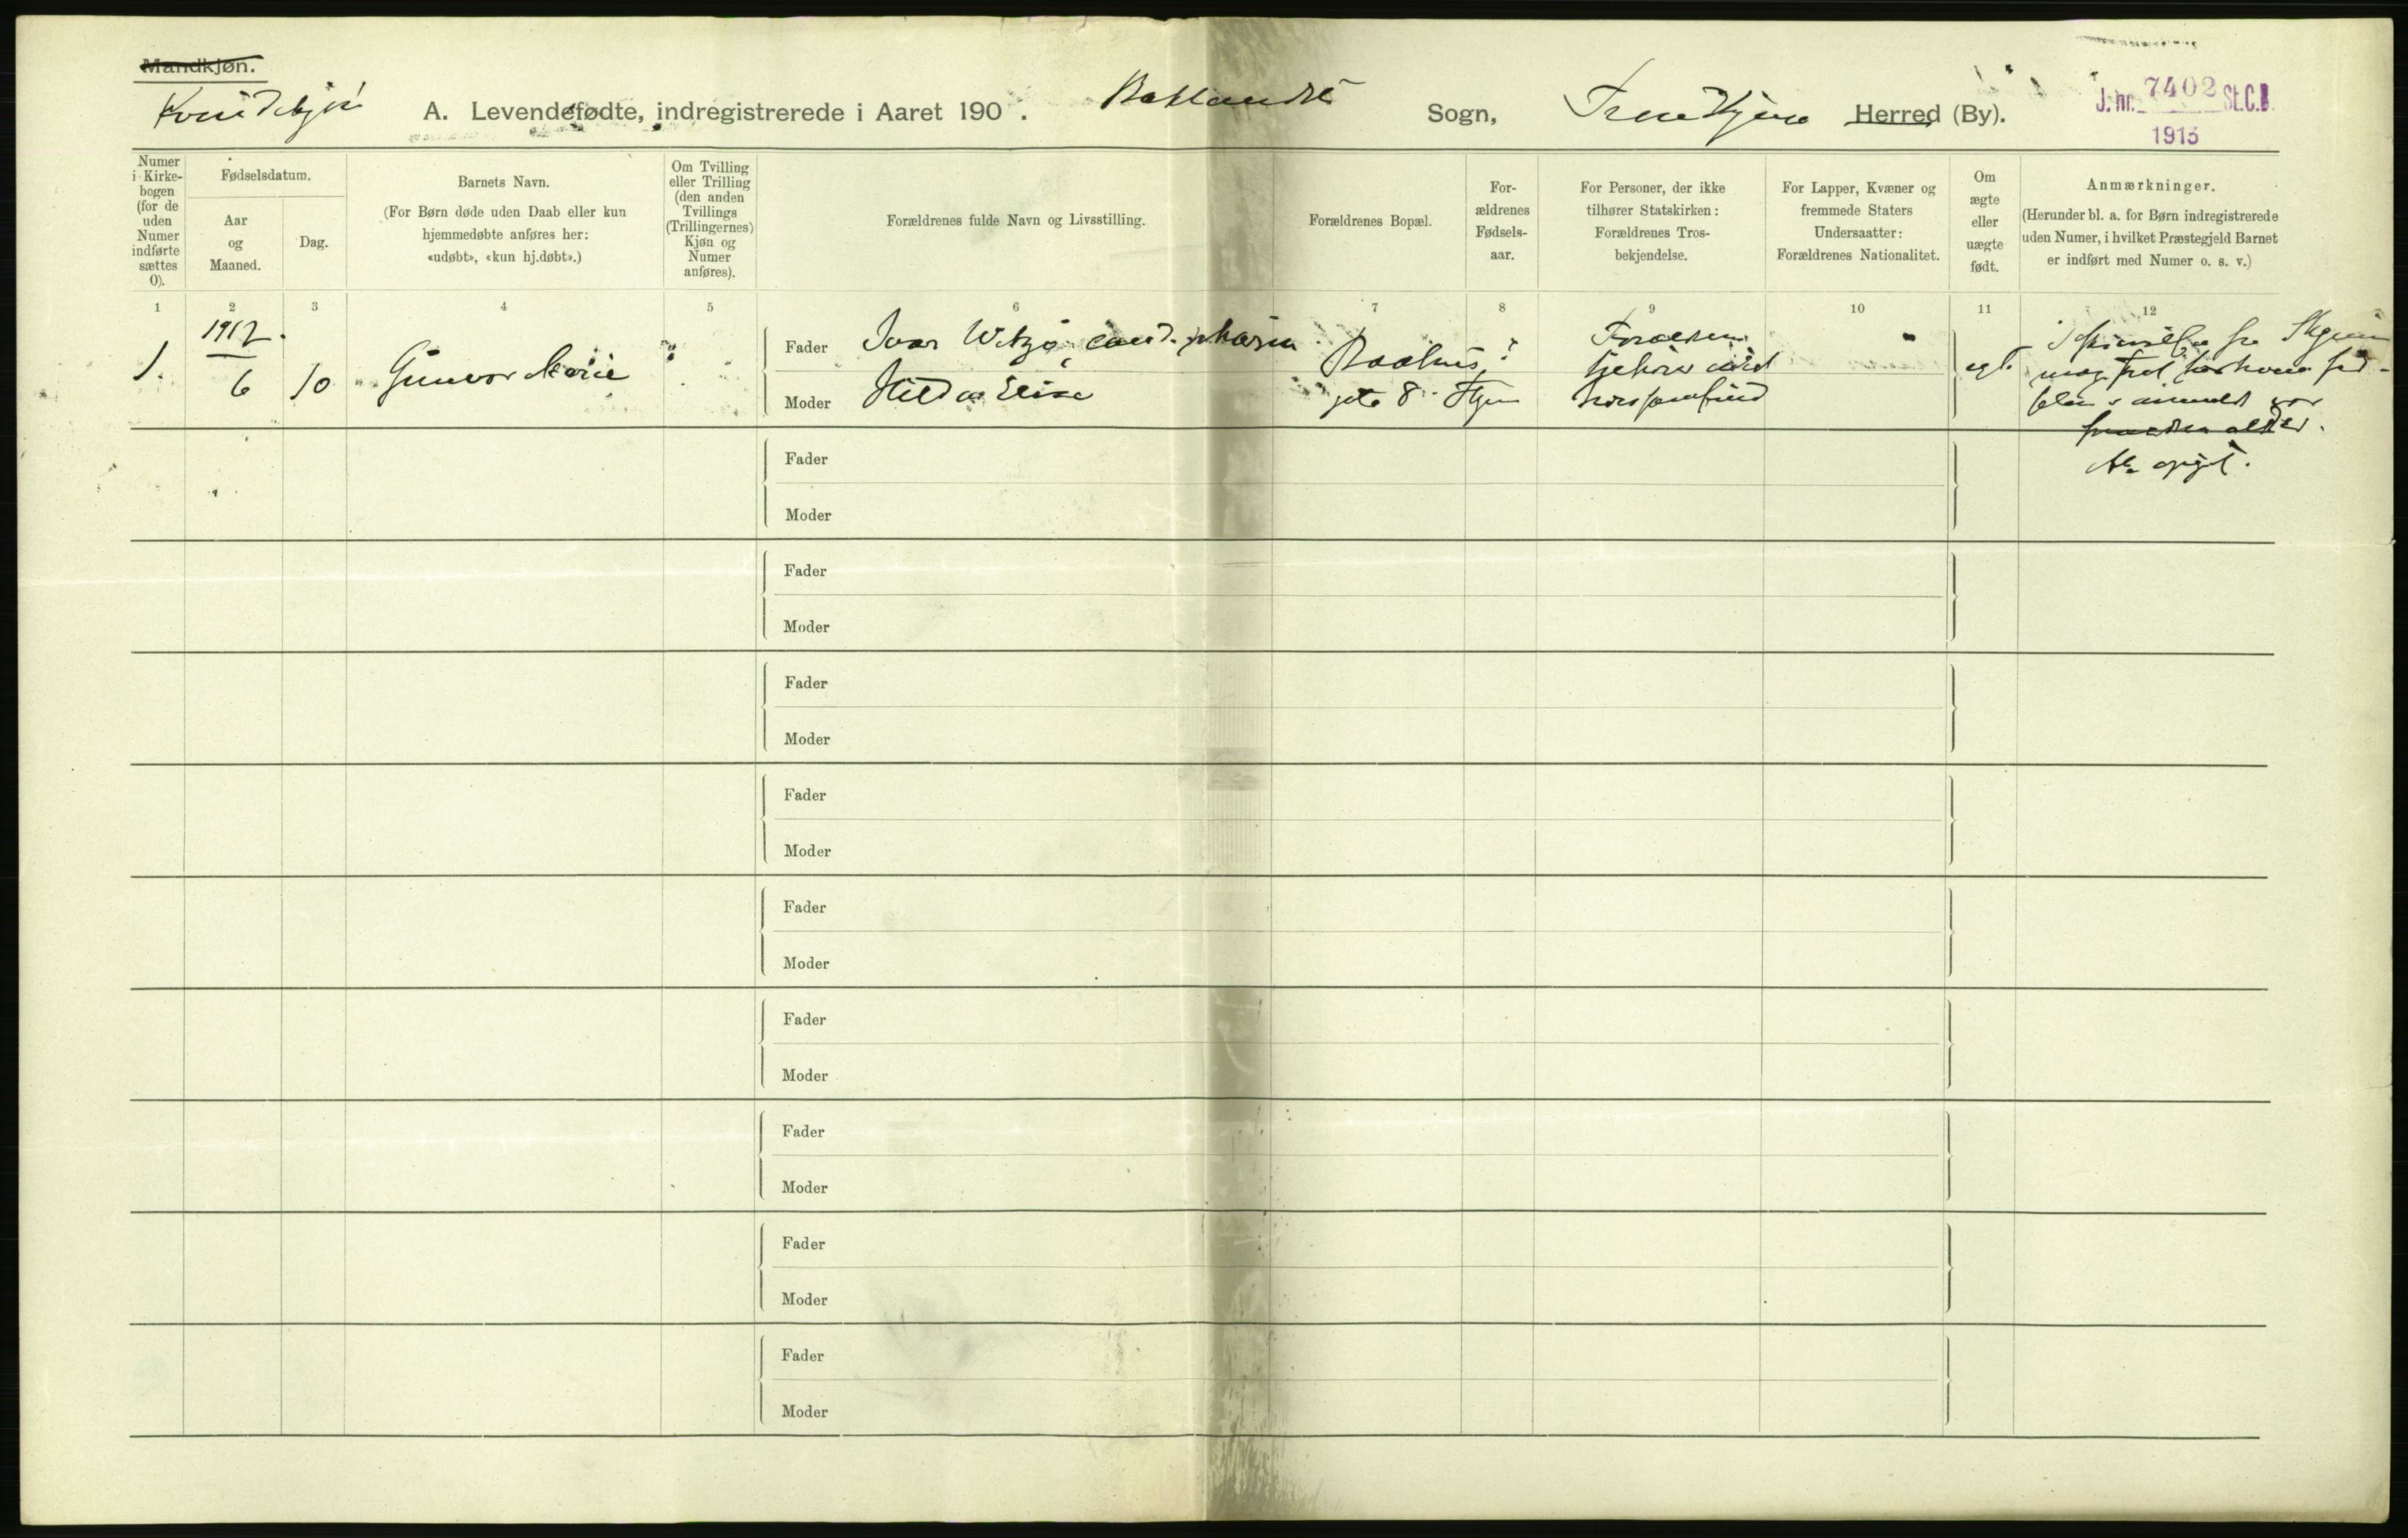 Mandkjøn.
Kvindekjøn
A. Levendefødte, indregistrerede i Aaret 190 . Baklandets Sogn, Trondhjem Herred (By).
J. nr. 7402 St.C.B.
1913
Numer i Kirkebogen (for de uden Numer indførte sættes 0).
Fødselsdatum.
Aar og Maaned.
Dag.
Barnets Navn.
(For Børn døde uden Daab eller kun hjemmedøbte anføres her: «udøbt», «kun hj.døbt».)
Om Tvilling eller Trilling (den anden Tvillings (Trillingernes) Kjøn og Numer anføres).
Forældrenes fulde Navn og Livsstilling.
Forældrenes Bopæl.
Forældrenes Fødselsaar.
For Personer, der ikke tilhører Statskirken: Forældrenes Trosbekjendelse.
For Lapper, Kvæner og fremmede Staters Undersaatter: Forældrenes Nationalitet.
Om ægte eller uægte født.
Anmærkninger.
(Herunder bl. a. for Børn indregistrerede uden Numer, i hvilket Præstegjeld Barnet er indført med Numer o. s. v.)
1 2 3 4 5 6 7 8 9 10 11 12
1912.
1. 6 10 Gunvor Marie
Fader Ivar Witzø, cand. pharm.
Moder Hilda Elise
Raadhus
gt. 8 Thjem
?
Forældrene
tilhører intet
trossamfund
egt.
Fader
Moder
Fader
Moder
Fader
Moder
Fader
Moder
Fader
Moder
Fader
Moder
Fader
Moder
Fader
Moder
Fader
Moder